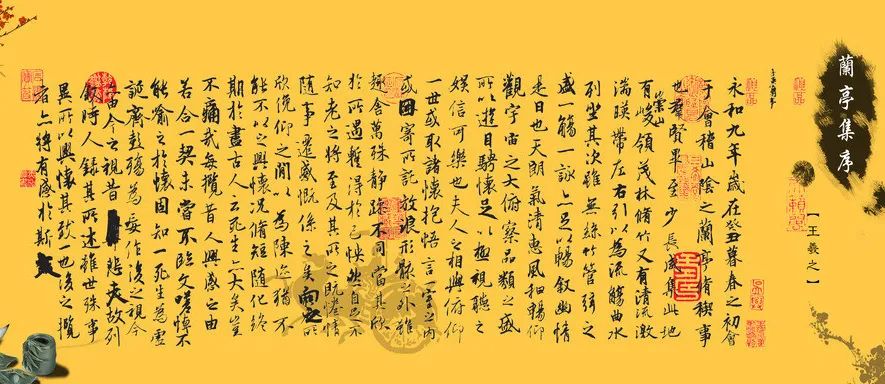 蘭亭集序
【王羲之】
永和九年歲在癸丑暮春之初會
于會稽山陰之蘭亭脩稧事
也羣賢畢至少長咸集此地
有崇山峻領茂林脩竹又有清流激
湍暎帶左右引以為流觴曲水
列坐其次雖無絲竹管弦之
盛一觴一詠亦足以暢叙幽情
是日也天朗氣清惠風和暢仰
觀宇宙之大俯察品類之盛
所以遊目騁懷足以極視聽之
娛信可樂也夫人之相與俯仰
一世或取諸懷抱悟言一室之内
或因寄所託放浪形骸之外雖
趣舍萬殊静躁不同當其欣
於所遇暫得於己怏然自足不
知老之將至及其所之既惓情
隨事遷感慨係之矣向之所
欣俛仰之閒以為陳迹猶不
能不以之興懷況脩短隨化終
期於盡古人云死生亦大矣豈
不痛哉每攬昔人興感之由
若合一契未嘗不臨文嗟悼不
能喻之於懷固知一死生為虛
誕齊彭殤為妄作後之視今
亦由今之視昔悲夫故列
叙時人録其所述雖世殊事
異所以興懷其致一也後之攬
者亦將有感於斯文